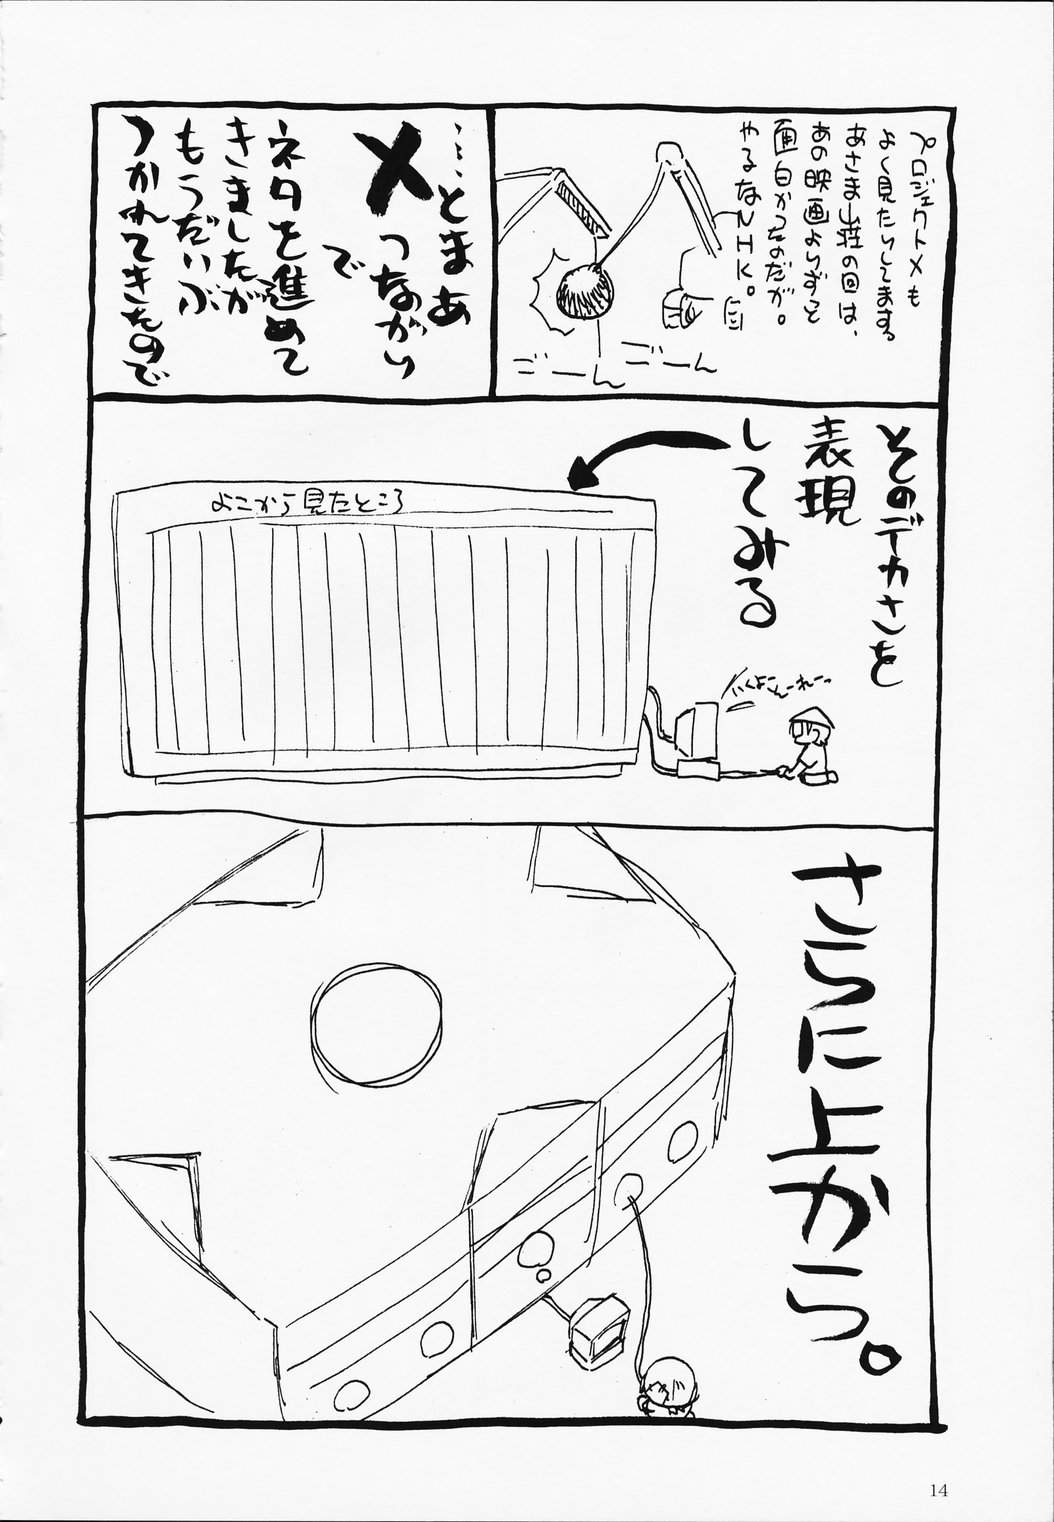 プロジェクトXも
よく見たりしてます。
あさま山荘の回は、
あの映画よりずっと
面白かったのだが。
やるなNHK。
ごーん
ごーん
……とまあ
X つながり
で
ネタを進めて
きましたが
もうだいぶ
つかれてきたので
そのデカさを
表現
してみる
よこから見たところ
いくよこんーれーっ
さらに上から。
14